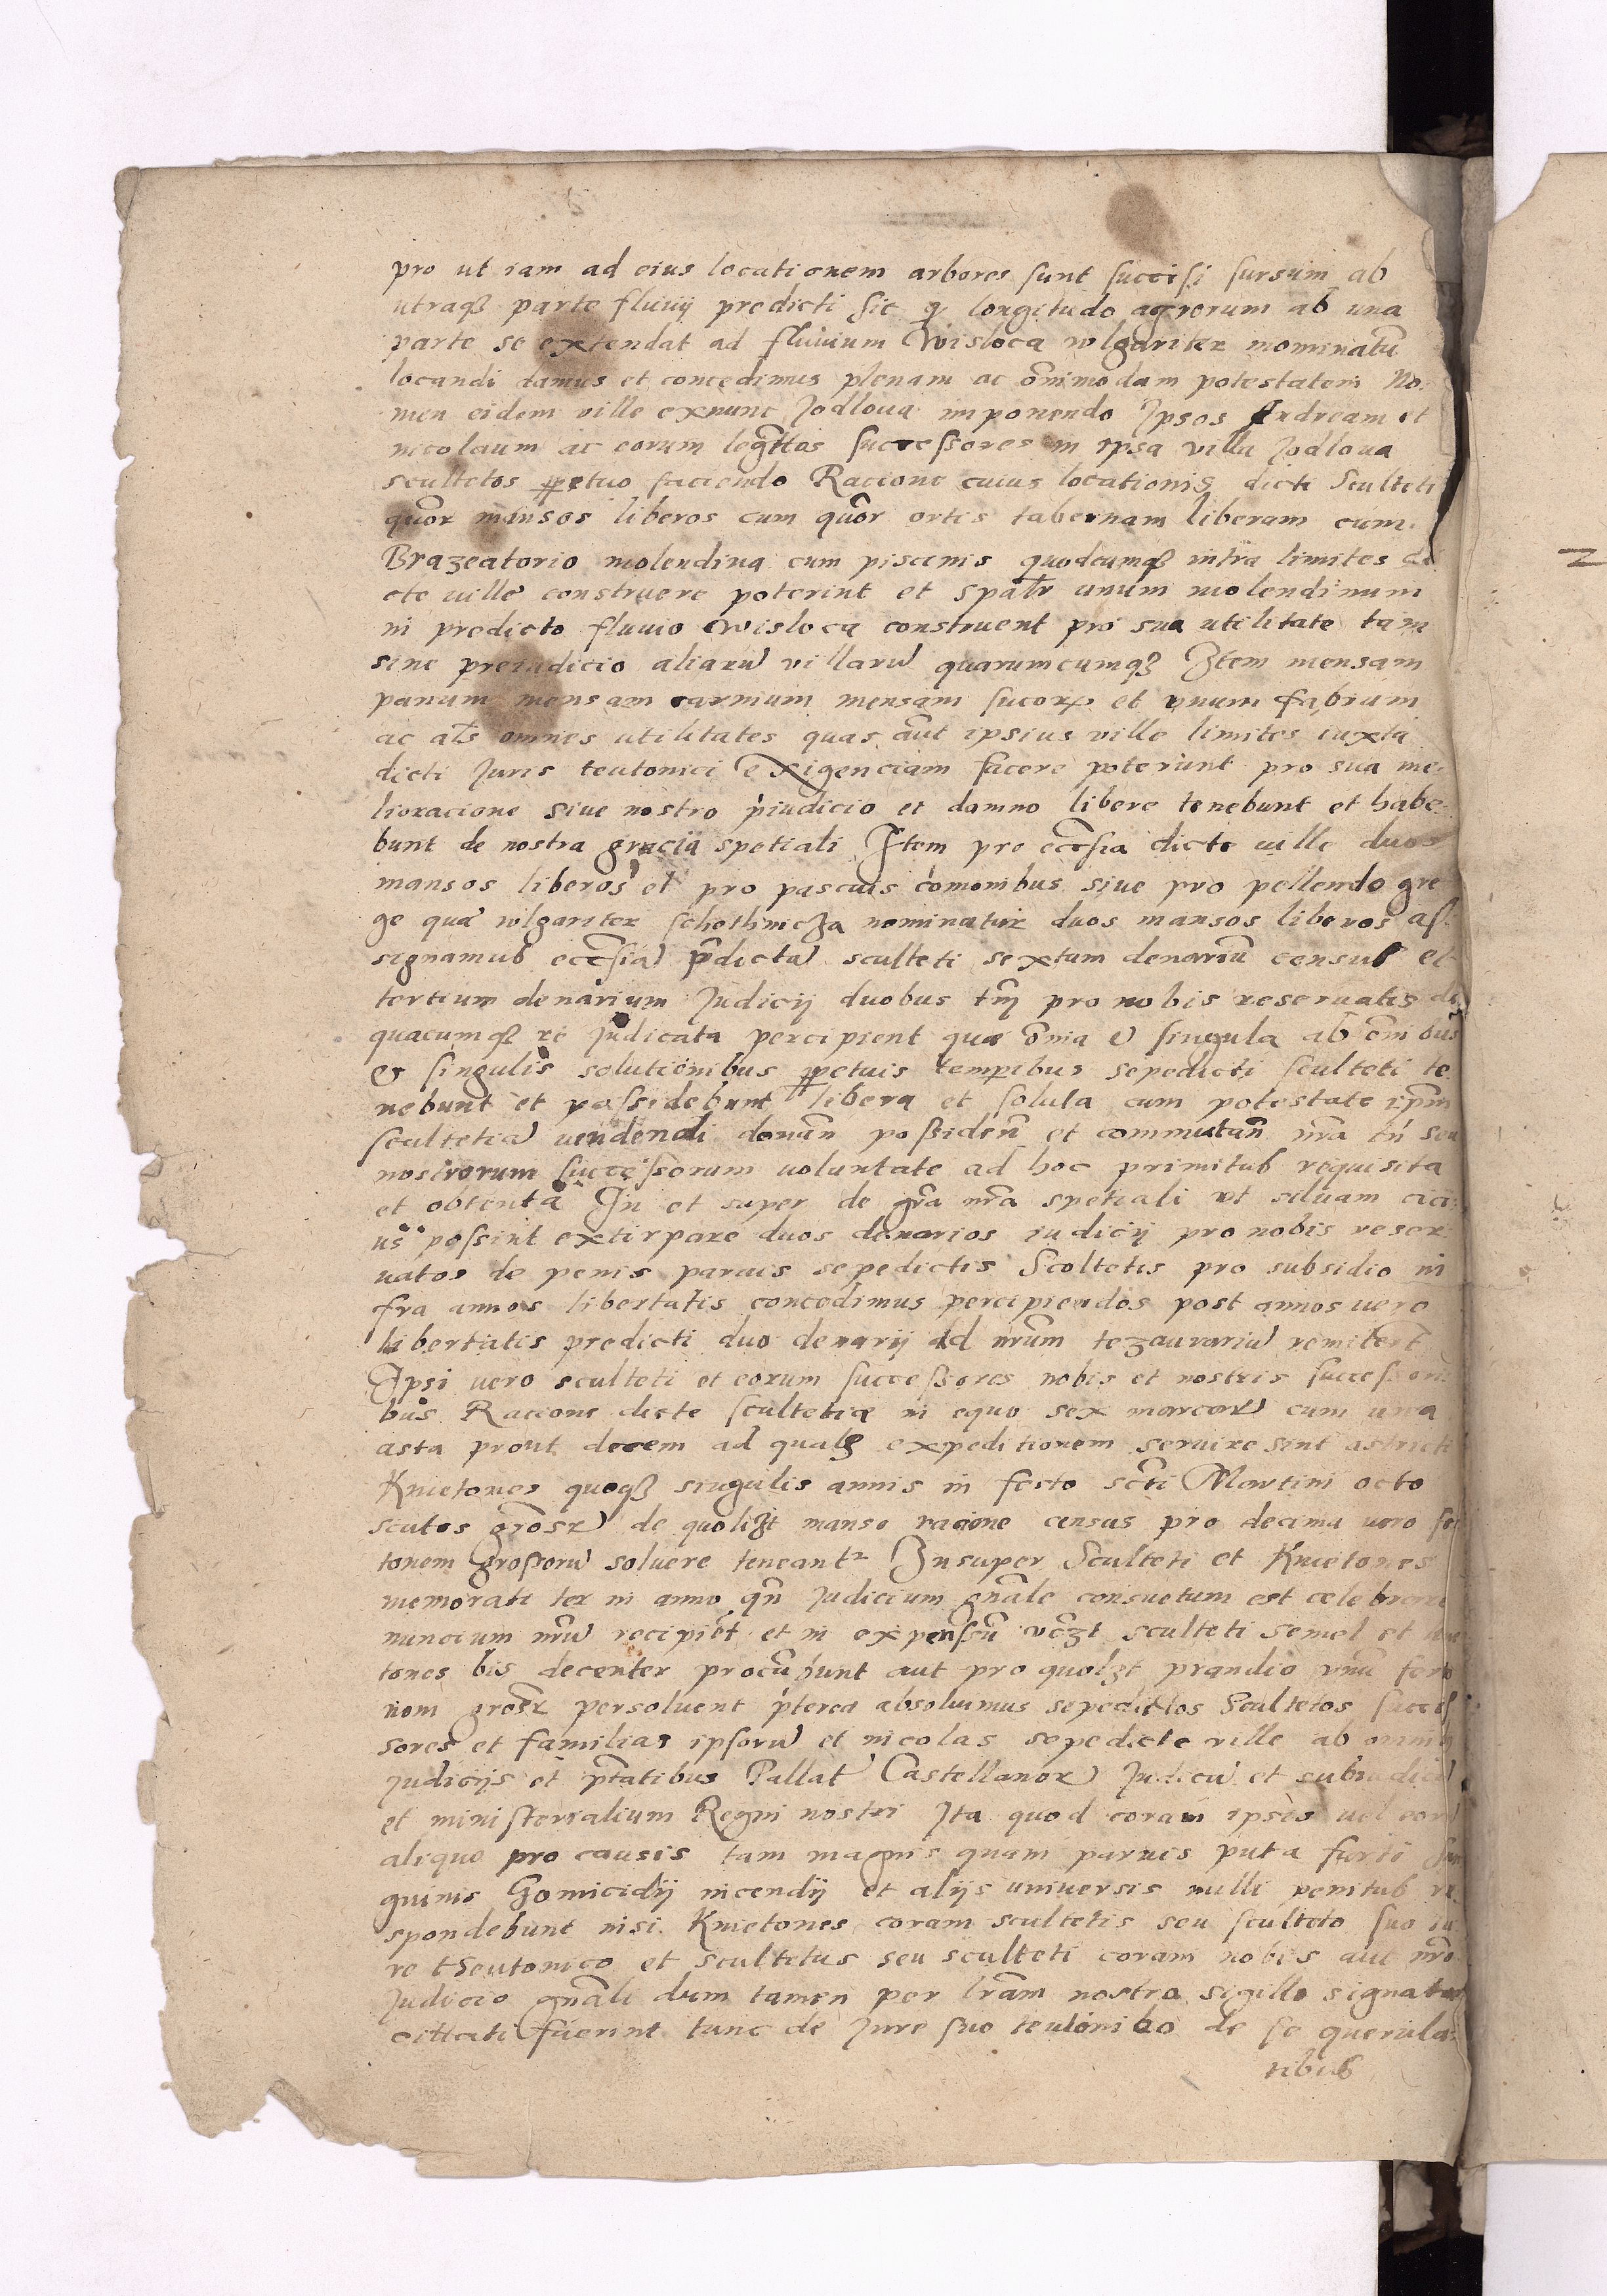 pro ut iam ad eius locationem arbores sunt succisi sursum ab
utraqȝ parte fluvij predicti sic q longitudo agrorum ab una
parte se extendat ad fluuium Wisloca wlgariter nominatū
locandi damus et concedimus plenam ac ōmimodam potestatem No-
men eidem ville exnunc Jodloua imponendo Ipsos Andream et
nicolaum ac eorum legittos successores in ipsa villa Jodloua
scultetos ppetuo faciendo Racione cuius locationis dicti Sculteti
quōr mansos liberos cum quōr ortis tabernam liberam cum
Brazeatorio molendina cum piscinis quodcumqȝ intra limites di
cte ville construere poterint et spāltr unum molendinum
in predicto fluvio Wisloca construent pro sua utilitate tam
sine preiudicio aliarū villarū quarumcumqȝ Item mensam
panum mensam carnium mensam sucorꝝ et unum fabrum
ac als omnes utilitates quas aūt ipsius ville limites iuxta
dicti Juris teutonici exigenciam facere poterunt pro sua me-
lioracione sine nostro piudicio et damno libere tenebunt et habe-
bunt de nostra gracia spetiali Item pro eccsia dicte ville duos
mansos liberos et pro pascuis comonibus siue pro pellendo gre
ge qua wlgariter schothnicza nominatur duos mansos liberos as-
signamus eccsia pdicta sculteti sextum denariū census et
tertium denarium Judicij duobus tm pro nobis reseruatis de
quacumqȝ re Judicata percipient que ōnia et singula ab ōnibus
et singulis solutionibus ppetuis tempibus sepedicti sculteti te
nebunt et possidebunt libera et soluta cum potestate ipm
scultetiā vendendi donan possiden et commutan nra tn seu
nostrorum successorum voluntate ad hoc primitus requisita
et obtenta In et super de gra nra spetiali vt siluam cici-
us possint extirpare duos denarios iudicij pro nobis reser
uatos de penis paruis sepedictis Scoltetis pro subsidio in
fra annos libertatis concedimus percipiendos post annos vero
libertatis predicti duo denarij ad nrum tezaurariū remitent
Ipsi vero sculteti et eorum successores nobis et nostris successori
bus Racione dicte scultetiæ in equo sex marcarū cum una
asta prout decem ad qualȝ expeditionem seruire sint astricti
Kmetones quoqȝ singulis annis in festo scti Martini octo
scutos grosr de quolizt manso racione census pro decima uero fer
tonem grossorū soluere teneantr Insuper Sculteti et Kmetones
memorati ter in anno qn Judicium gnale consuetum est celebrari
nuncium nrū recipiet et in expensū vczt sculteti semel et kme
tones bis decenter procurunt aut pro quolzt prandio unū ferto
nem grosr persoluent pterea absoluimus sepedictos Scultetos succes
sores et familias ipsorū et incolas sepedicte ville ab omnia
judicijs et ptatibus Pallat Castellanorū Judicū et subiudicū
et ministerialium Regni nostri Ita quod coram ipsis uel eorū
aliquo pro causis tam magnis quam paruis puta furti San
guinis Homicidij incendij et alijs universis nulli penitus re
spondebunt nisi Kmetones coram scultetis seu sculteto suo iu
re theutonico et scultetus seu sculteti coram nobis aut nro
Judicio gnali dum tamen per lram nostro sigillo signatas
cittati fuerint tunc de Jure suo teutonico de se querula-
tibus